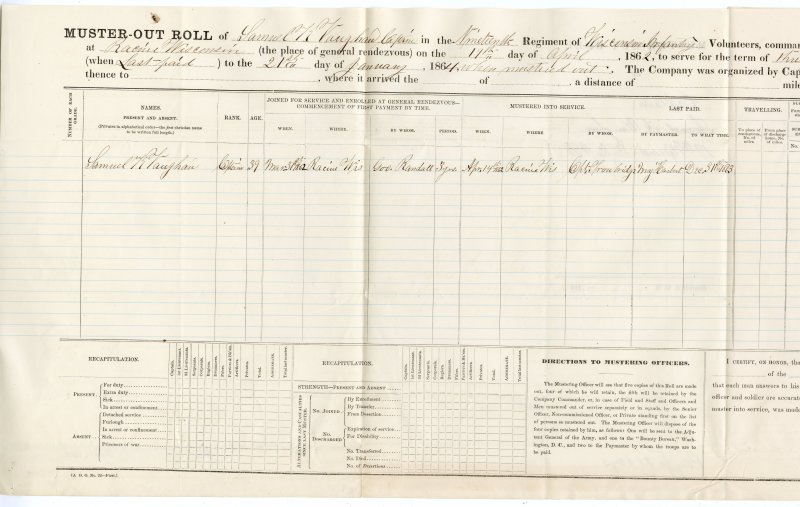 MUSTER-OUT ROLL of Samuel K Vaughan Captain in the Nineteenth Regiment of Wisconsin Infantry Volunteers, comman
at Racine Wisconsin (the place of general rendezvous) on the 11th day of April, 1862, to serve for the term of Thre
(when Last paid) to the 21st day of January, 1864, when mustered out. The Company was organized by Cap
thence to , where it arrived the of , a distance of mile
NUMBER OF EACH GRADE.
NAMES.
PRESENT AND ABSENT.
(Privates in alphabetical order—the first christian name to be written full length.)
RANK.
AGE.
JOINED FOR SERVICE AND ENROLLED AT GENERAL RENDEZVOUS—
COMMENCEMENT OF FIRST PAYMENT BY TIME.
WHEN. WHERE. BY WHOM. PERIOD.
MUSTERED INTO SERVICE.
WHEN. WHERE BY WHOM.
LAST PAID.
BY PAYMASTER. TO WHAT TIME.
TRAVELLING.
To place of rendezvous, No. of miles
From place of discharge home, No. of miles.
Samuel K Vaughan Captain 39 Racine Wis Gov Randall 3 yrs Racine Wis Capt Trowbridge Dec 31st 1863
RECAPITULATION.
Captain.
1st Lieutenant.
2d Lieutenants.
Sergeants.
Corporals.
Bugles.
Drummers.
Fifers.
Farriers & B'smiths.
Artificers.
Privates.
Total.
AGGREGATE.
Total last muster.
PRESENT.
For duty
Extra duty
Sick
In arrest or confinement
ABSENT.
Detached service
Furlough
In arrest or confinement
Sick
Prisoners of war
(A. G. O. No. 25—First.)
RECAPITULATION.
STRENGTH—PRESENT AND ABSENT
ALTERATIONS AND CASUALTIES SINCE LAST MUSTER.
No. JOINED
By Enrollment
By Transfer
From Desertion
No. DISCHARGED
Expiration of service
For Disability
No. Transferred
No. Died
No. of Desertions
DIRECTIONS TO MUSTERING OFFICERS.
The Mustering Officer will see that five copies of this Roll are made
out, four of which he will retain, the fifth will be retained by the
Company Commander; or, in case of Field and Staff and Officers and
Men mustered out of service separately or in squads, by the Senior
Officer, Non-commissioned Officer, or Private standing first on the list
of persons so mustered out. The Mustering Officer will dispose of the
four copies retained by him, as follows: One will be sent to the Adju-
tant General of the Army, and one to the "Bounty Bureau," Wash-
ington, D. C., and two to the Paymaster by whom the troops are to
be paid.
I CERTIFY, ON HONOR, tha
of the
that each man answers to his
officer and soldier are accurate
muster into service, was made